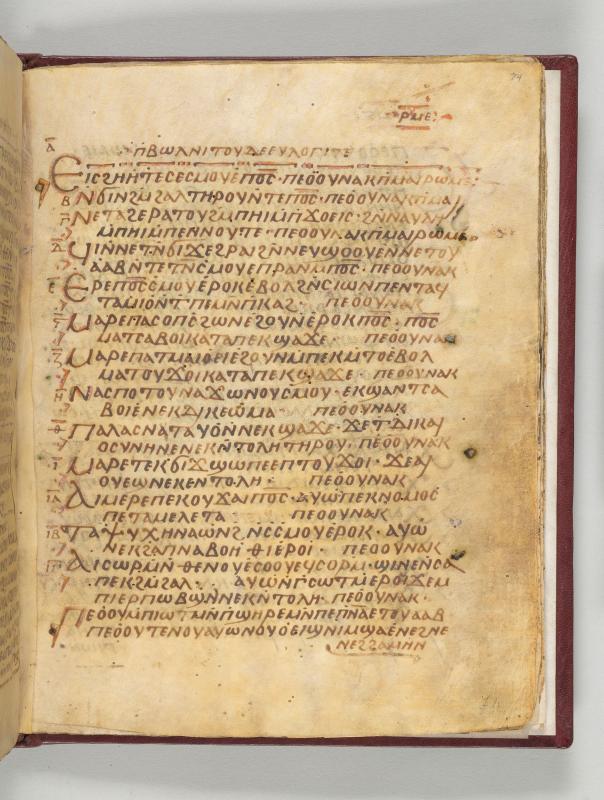 24
ⲣⲙⲉ
ⲁ̅
ⲡⲃⲱⲗ ⲛⲓⲧⲟⲩⲇⲉⲉⲩⲗⲟⲅⲓⲧⲉ
ⲉⲓⲥϩⲏⲏⲧⲉ ⲥⲙⲟⲩ ⲉⲡⲟ̅ⲥ̅ · ⲡⲉⲟⲟⲩ ⲛⲁⲕ ⲡⲙⲁⲓⲣⲱⲙⲉ
ⲃ̅ ⲛϭⲓⲛϩⲙϩⲁⲗ ⲧⲏⲣⲟⲩ ⲛⲧⲉⲡⲟ̅ⲥ̅ · ⲡⲉⲟⲟⲩ ⲛⲁⲕ ⲡⲙⲁⲓ
ⲛⲉⲧⲁϩⲉⲣⲁⲧⲟⲩ ϩⲙⲡⲏⲓ ⲙⲡϫⲟⲉⲓⲥ · ϩⲛⲛⲁⲩⲗⲏ
ⲙⲡⲏⲓ ⲙⲡⲉⲛⲛⲟⲩⲧⲉ · ⲡⲉⲟⲟⲩ ⲛⲁⲕ ⲡⲙⲁⲓⲣⲱⲙⲉ
ϥⲓⲛⲛⲉⲧⲛϭⲓϫ ⲉϩⲣⲁⲓ ϩⲛⲛⲉⲩϣⲟⲟⲩⲉ ⲛⲛⲉⲧⲟⲩ
ⲁⲁⲃ ⲛⲧⲉⲧⲛⲥⲙⲟⲩ ⲉⲡⲣⲁⲛ ⲙⲡⲟ̅ⲥ̅ · ⲡⲉⲟⲟⲩ ⲛⲁⲕ
ⲉ̅ ⲉⲣⲉⲡⲟ̅ⲥ̅ ⲥⲙⲟⲩ ⲉⲣⲟⲕ ⲉⲃⲟⲗ ϩⲛⲥⲓⲱⲛ ⲡⲉⲛⲧⲁϥ
ⲧⲁⲙⲓⲟⲛⲧⲡⲉ ⲙⲛⲡⲕⲁϩ · ⲡⲉⲟⲟⲩ ⲛⲁⲕ
ⲙⲁⲣⲉⲡⲁⲥⲟⲡⲥ ϩⲱⲛ ⲉϩⲟⲩⲛ ⲉⲣⲟⲕ ⲡⲟ̅ⲥ̅ · ⲡⲟ̅ⲥ̅
ⲙⲁⲧⲥⲁⲃⲟⲓ ⲕⲁⲧⲁⲡⲉⲕϣⲁϫⲉ · ⲡⲉⲟⲟⲩ ⲛⲁⲕ
ⲙⲁⲣⲉⲡⲁⲧⲙⲁⲓⲟ ⲉⲓ ⲉϩⲟⲩⲛ ⲙⲡⲉⲕⲙⲧⲟ ⲉⲃⲟⲗ
ⲙⲁⲧⲟⲩϫⲟⲓ ⲕⲁⲧⲁⲡⲉⲕϣⲁϫⲉ · ⲡⲉⲟⲟⲩ ⲛⲁⲕ
ⲏ̅ ⲛⲁⲥⲡⲟⲧⲟⲩ ⲛⲁϫⲱ ⲛⲟⲩⲥⲙⲟⲩ · ⲉⲕϣⲁⲛⲧⲥⲁ
ⲃⲟⲓ ⲉⲛⲉⲕⲇⲓⲕⲉⲱⲙⲁ · ⲡⲉⲟⲟⲩ ⲛⲁⲕ
ⲑ̅ ⲡⲁⲗⲁⲥ ⲛⲁⲧⲁⲩⲟ ⲛⲛⲉⲕϣⲁϫⲉ · ϫⲉⲧⲇⲓⲕⲁⲓ
ⲟⲥⲩⲛⲏ ⲛⲉⲛⲉⲕⲛⲧⲟⲗⲏ ⲧⲏⲣⲟⲩ · ⲡⲉⲟⲟⲩ ⲛⲁⲕ
ⲓ̅ ⲙⲁⲣⲉⲧⲉⲕϭⲓϫ ϣⲱⲡⲉ ⲉⲡⲧⲟⲩϫⲟⲓ · ϫⲉⲁⲓ
ⲟⲩⲉϣⲛⲉⲕⲉⲛⲧⲟⲗⲏ · ⲡⲉⲟⲟⲩ ⲛⲁⲕ
ⲓⲁ̅ ⲁⲓⲙⲉⲣⲉⲡⲉⲕⲟⲩϫⲁⲓ ⲡⲟⲥ · ⲁⲩⲱ ⲡⲉⲕⲛⲟⲙⲟⲥ
ⲡⲉⲧⲁⲙⲉⲗⲉⲧⲁ · ⲡⲉⲟⲟⲩ ⲛⲁⲕ
ⲓⲃ̅ ⲧⲁⲯⲩⲭⲏ ⲛⲁⲱⲛϩ ⲛⲥⲥⲙⲟⲩ ⲉⲣⲟⲕ · ⲁⲩⲱ
ⲛⲉⲕϩⲁⲡ ⲛⲁⲃⲟⲏⲑⲓ ⲉⲣⲟⲓ · ⲡⲉⲟⲟⲩ ⲛⲁⲕ
ⲓⲅ̅ ⲁⲓⲥⲱⲣⲙ ⲛⲑⲉ ⲛⲟⲩⲉⲥⲟⲟⲩ ⲉϥⲥⲟⲣⲙ · ϣⲓⲛⲉ ⲛⲥⲁ
ⲡⲉⲕϩⲙϩⲁⲗ · ⲁⲩⲱ ⲛⲅⲥⲱⲧⲙ ⲉⲣⲟⲓ ϫⲉⲙ
ⲡⲓⲉⲣⲡⲱⲃϣ ⲛⲛⲉⲕⲛⲧⲟⲗⲏ · ⲡⲉⲟⲟⲩ ⲛⲁⲕ ·
ⲡⲉⲟⲟⲩ ⲙⲡⲓⲱⲧ ⲙⲛⲡϣⲏⲣⲉ ⲙⲛⲡⲉⲡⲛⲁ ⲉⲧⲟⲩⲁⲁⲃ
ⲡⲉⲟⲟⲩ ⲧⲉⲛⲟⲩ ⲁⲩⲱ ⲛⲟⲩⲟⲉⲓϣ ⲛⲓⲙ ϣⲁⲉⲛⲉϩ ⲛⲉ
ⲛⲉϩ ϩⲁⲙⲏⲛ